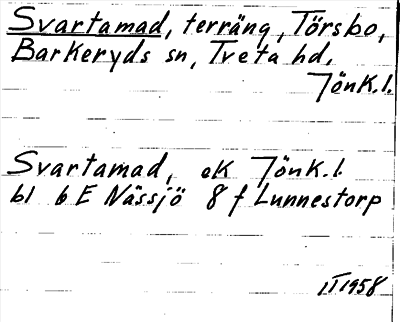 Svartamad, terräng, Törsbo,
Barkeryds sn, Tveta hd.
Jönk.l.
Svartamad, ek Jönk.l.
bl 6E Nässjö 8 f Lunnestorp
1/II 1958